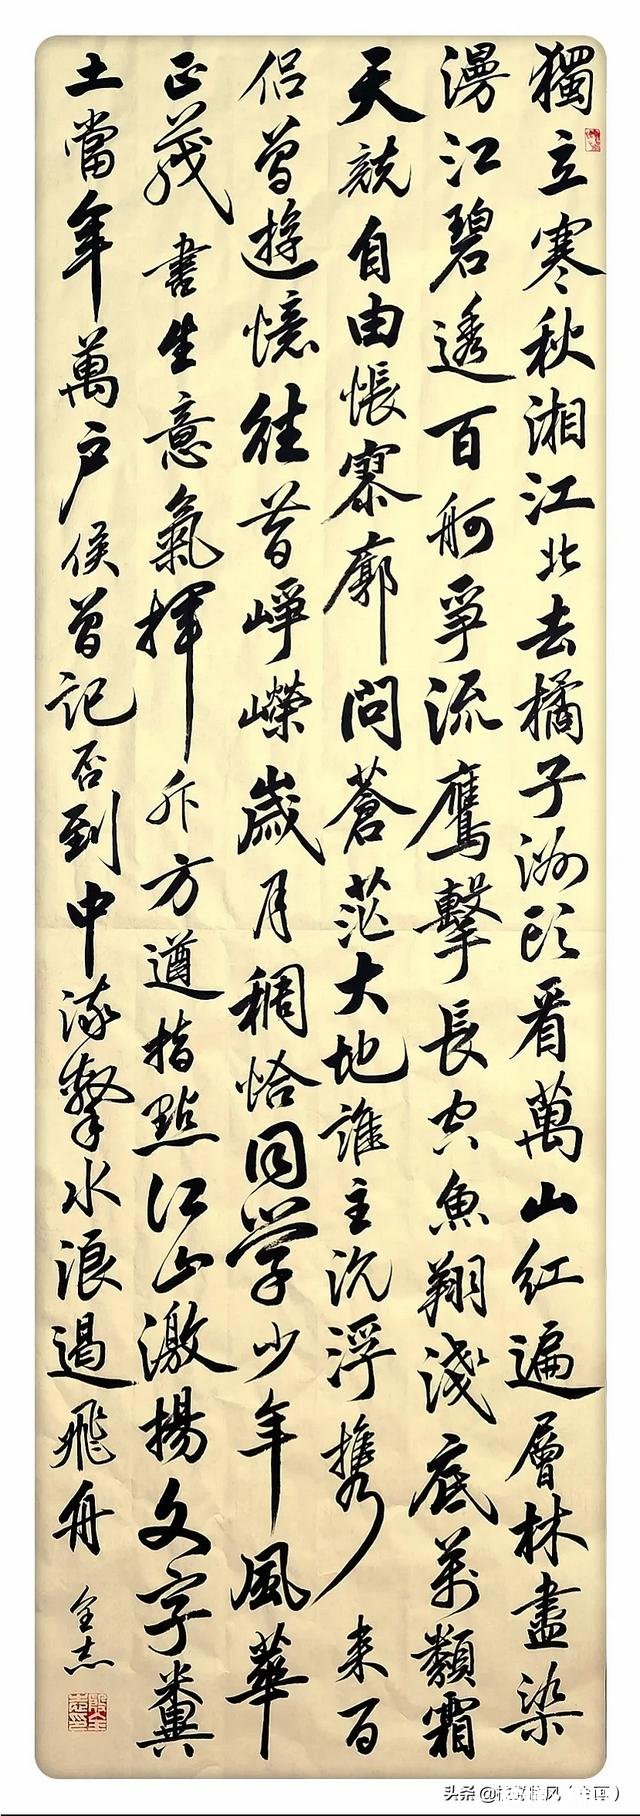 獨立寒秋湘江北去橘子洲頭看萬山紅遍層林盡染
漫江碧透百舸爭流鷹擊長空魚翔淺底萬類霜
天競自由悵寥廓問蒼茫大地誰主沉浮攜來百
侶曾遊憶往昔崢嶸歲月稠恰同學少年風華
正茂書生意氣揮斥方遒指點江山激揚文字糞
土當年萬戶侯曾記否到中流擊水浪遏飛舟
全志
头条@